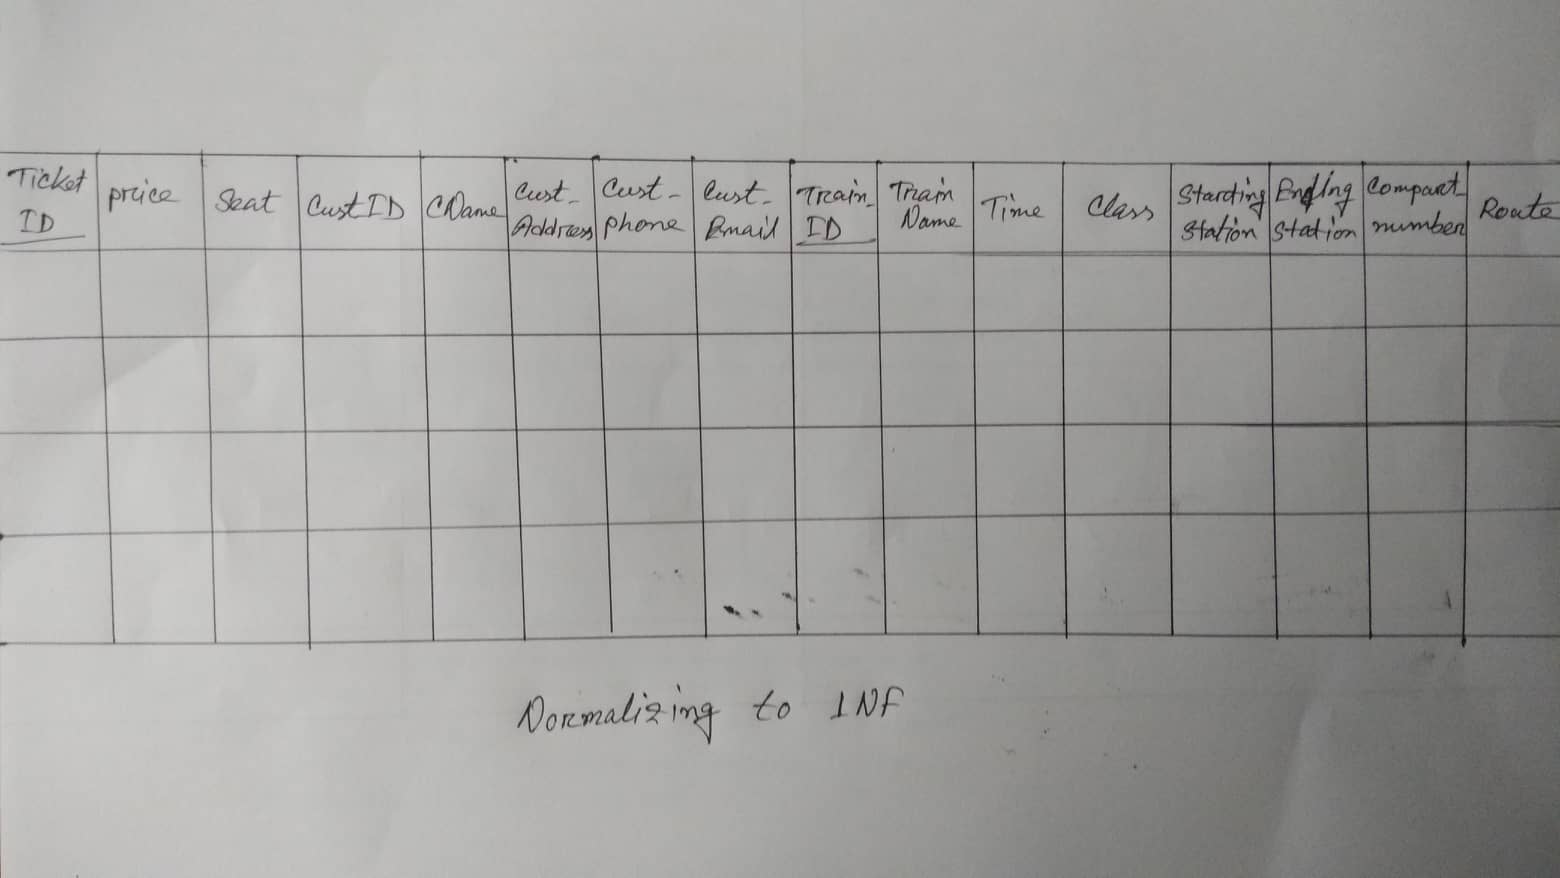 Ticket ID price Seat CustID CName Cust_ Address Cust_ phone Cust_ Email Train_ ID Train Name Time Class Starting Station Ending Station Compart_ number Route
Normalizing to 1NF